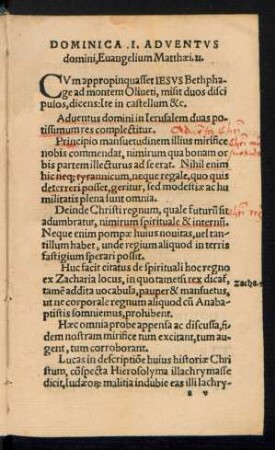 DOMINICA .I. ADVENTVS
domini, Euangelium Matthæi. 21.
CVm appropinquasset IESVS Bethpha
ge ad montem Oliueti, misit duos disci
pulos, dicens: Ite in castellum &c.
Aduentus domini in Ierusalem duas po
tissimum res complectitur.
Principio mansuetudinem illius mirifice
nobis commendat, nimirum qua bonam or
bis partem illecturus ad se erat. Nihil enim
hic neq; tyrannicum, neque regale, quo quis
deterreri posset, geritur, sed modestiæ ac hu
militatis plena sunt omnia.
Deinde Christi regnum, quale futurũ sit
adumbratur, nimirum spirituale & internũ.
Neque enim pompæ huius nouitas, uel tan
tillum habet, unde regium aliquod in terris
fastigium sperari possit.
Huc facit citatus de spirituali hoc regno
ex Zacharia locus, in quo tametsi rex dicat̃,
tamẽ addita uocabula, pauper & mansuetus,
ut ne corporale regnum aliquod cũ Anaba
ptistis somniemus, prohibent.
Zacha.
Hæc omnia probe appensa ac discussa, fi
dem nostram mirifice tum excitant, tum au
gent, tum corroborant.
Lucas in descriptiõe huius historiæ Chri
stum, cõspecta Hierosolyma illachrymasse
dicit, Iudæoꝝ malitia indubie eas illi lachry-
a v